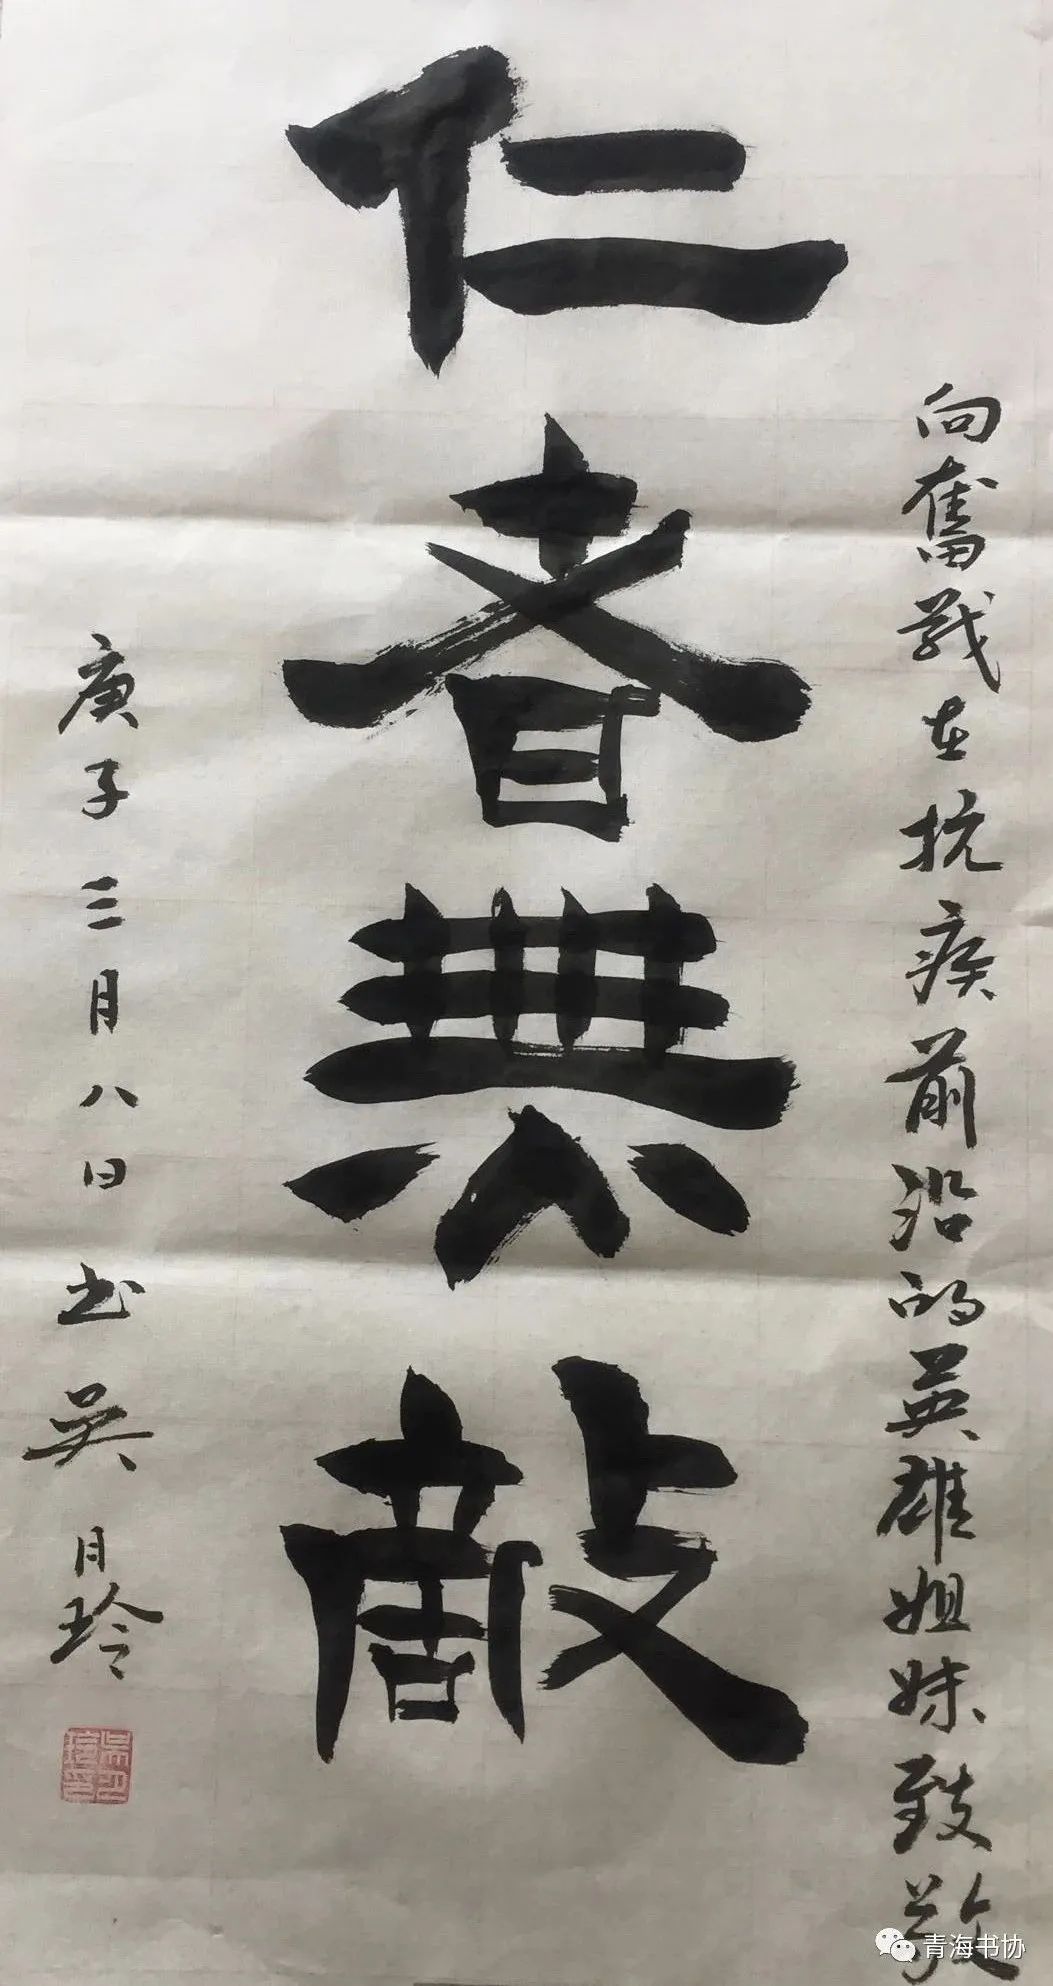 向奮戰在抗疫前沿的英雄姐妹致敬
仁者無敵
庚子三月八日书吴月玲
青海书协